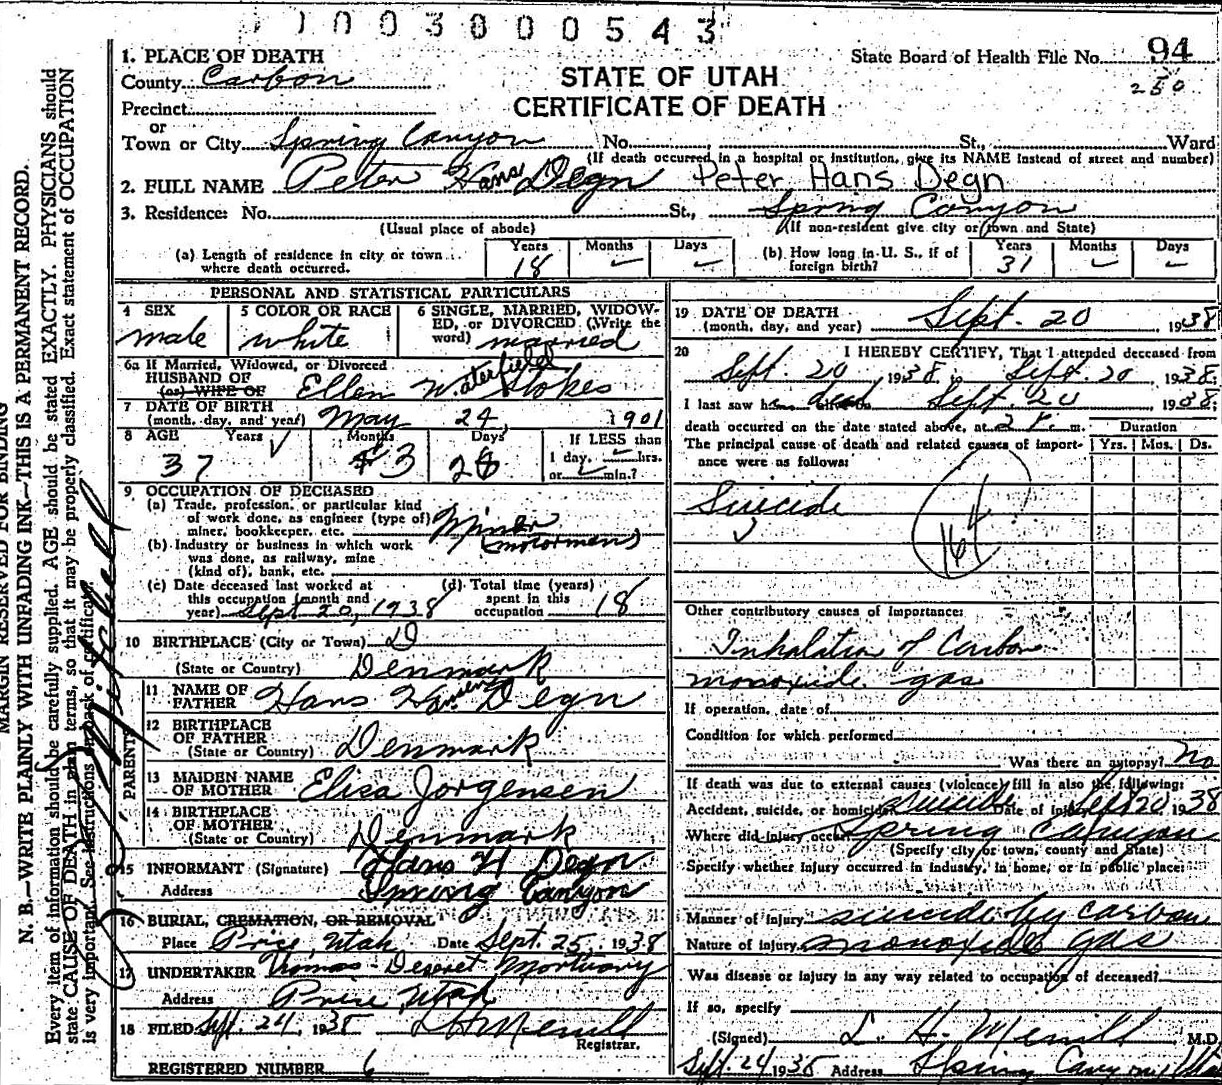 1003000543
1. PLACE OF DEATH
State Board of Health File No. 94
County Carbon
STATE OF UTAH
250
Precinct
CERTIFICATE OF DEATH
or
Town or City Spring Canyon No. St., Ward
(If death occurred in a hospital or institution, give its NAME instead of street and number)
2. FULL NAME Peter Hans Degn Peter Hans Degn
3. Residence: No. St., Spring Canyon
(Usual place of abode) (If non-resident give city or town and State)
(a) Length of residence in city or town where death occurred. Years 18 Months – Days –
(b) How long in U. S., if of foreign birth? Years 31 Months – Days –
PERSONAL AND STATISTICAL PARTICULARS
4 SEX male
5 COLOR OR RACE white
6 SINGLE, MARRIED, WIDOWED, or DIVORCED (Write the word) married
6a If Married, Widowed, or Divorced
HUSBAND OF Ellen Waterfield Stokes
(or) WIFE OF
7 DATE OF BIRTH
(month, day, and year) May 24, 1901
8 AGE Years 37 Months 3 Days If LESS than
1 day, hrs.
or min.?
9 OCCUPATION OF DECEASED
(a) Trade, profession, or particular kind
of work done, as engineer (type of)
miner, bookkeeper, etc. Miner
(motorman)
(b) Industry or business in which work
was done, as railway, mine
(kind of), bank, etc.
(c) Date deceased last worked at
this occupation (month and
year) Sept 20, 1938
(d) Total time (years)
spent in this
occupation 18
10 BIRTHPLACE (City or Town) D
(State or Country) Denmark
PARENTS
11 NAME OF
FATHER Hans Degn
12 BIRTHPLACE
OF FATHER
(State or Country) Denmark
13 MAIDEN NAME
OF MOTHER Elisa Jorgensen
14 BIRTHPLACE
OF MOTHER
(State or Country) Denmark
15 INFORMANT (Signature) Hans H Degn
Address Spring Canyon
16 BURIAL, CREMATION, OR REMOVAL
Place Price, Utah Date Sept. 25, 1938
17 UNDERTAKER Thomas Deseret Mortuary
Address Price Utah
18 FILED Sept. 24, 1938 L H Merrill
Registrar.
REGISTERED NUMBER 6
19 DATE OF DEATH
(month, day, and year) Sept. 20 1938
20 I HEREBY CERTIFY, That I attended deceased from
Sept. 20, 1938, Sept. 20, 1938.
I last saw h dead Sept. 20 1938.
death occurred on the date stated above, at 2 P m.
Duration
The principal cause of death and related causes of importance were as follows: Yrs. Mos. Ds.
Suicide
164
Other contributory causes of importance:
Inhalation of Carbon
monoxide gas
If operation, date of
Condition for which performed
Was there an autopsy? No
If death was due to external causes (violence) fill in also the following:
Accident, suicide, or homicide suicide Date of injury Sept 20 1938
Where did injury occur Spring Canyon
(Specify city or town, county and State)
Specify whether injury occurred in industry, in home, or in public place:
Manner of injury suicide by carbon
Nature of injury monoxide gas
Was disease or injury in any way related to occupation of deceased?
If so, specify
(Signed) L. H. Merrill M.D.
Sept. 24 1938 Address Spring Canyon Utah
MARGIN RESERVED FOR BINDING
N. B.—WRITE PLAINLY WITH UNFADING INK—THIS IS A PERMANENT RECORD.
Every item of information should be carefully supplied. AGE should be stated EXACTLY. PHYSICIANS should
state CAUSE OF DEATH in plain terms, so that it may be properly classified. Exact statement of OCCUPATION
is very important. See instructions on back of certificate.